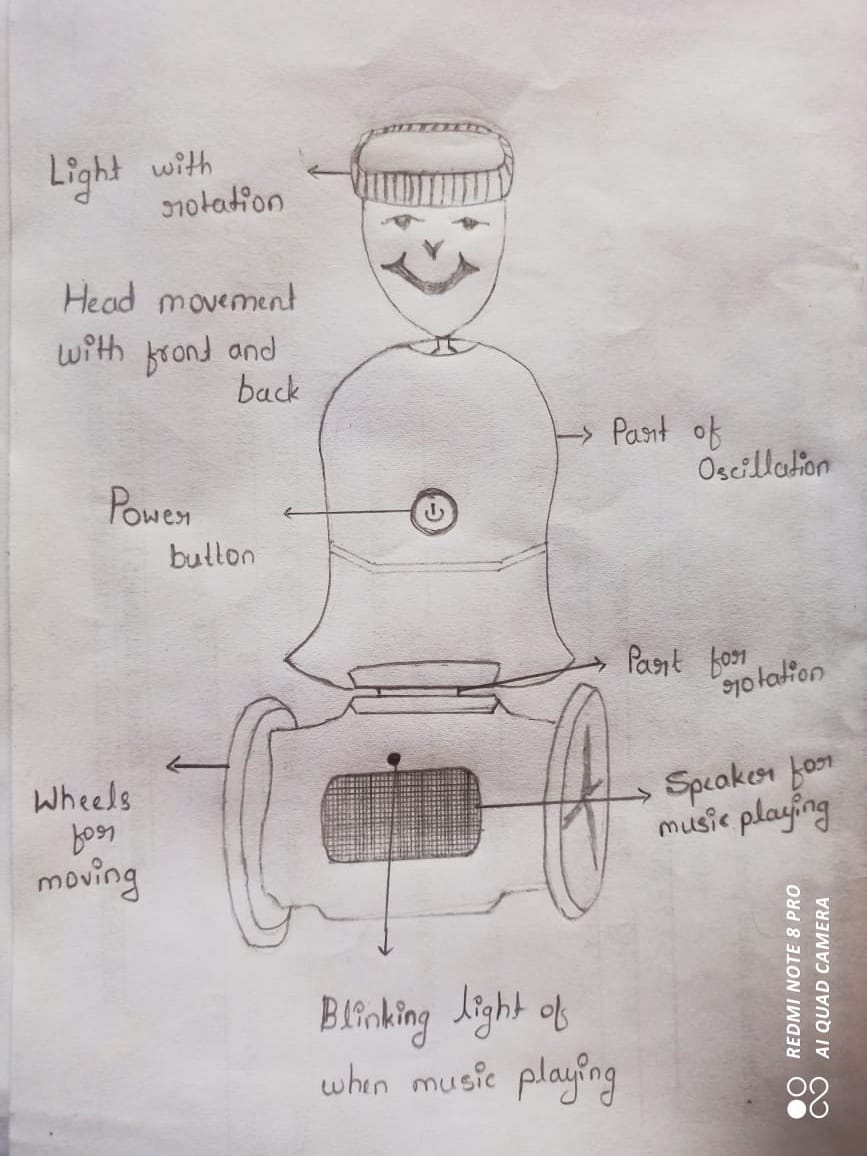 Light with
rotation
Head movement
with front and
back
Part of
Oscillation
Power
button
Part for
rotation
Wheels
for
moving
Speaker for
music playing
Blinking light of
when music playing
REDMI NOTE 8 PRO
AI QUAD CAMERA